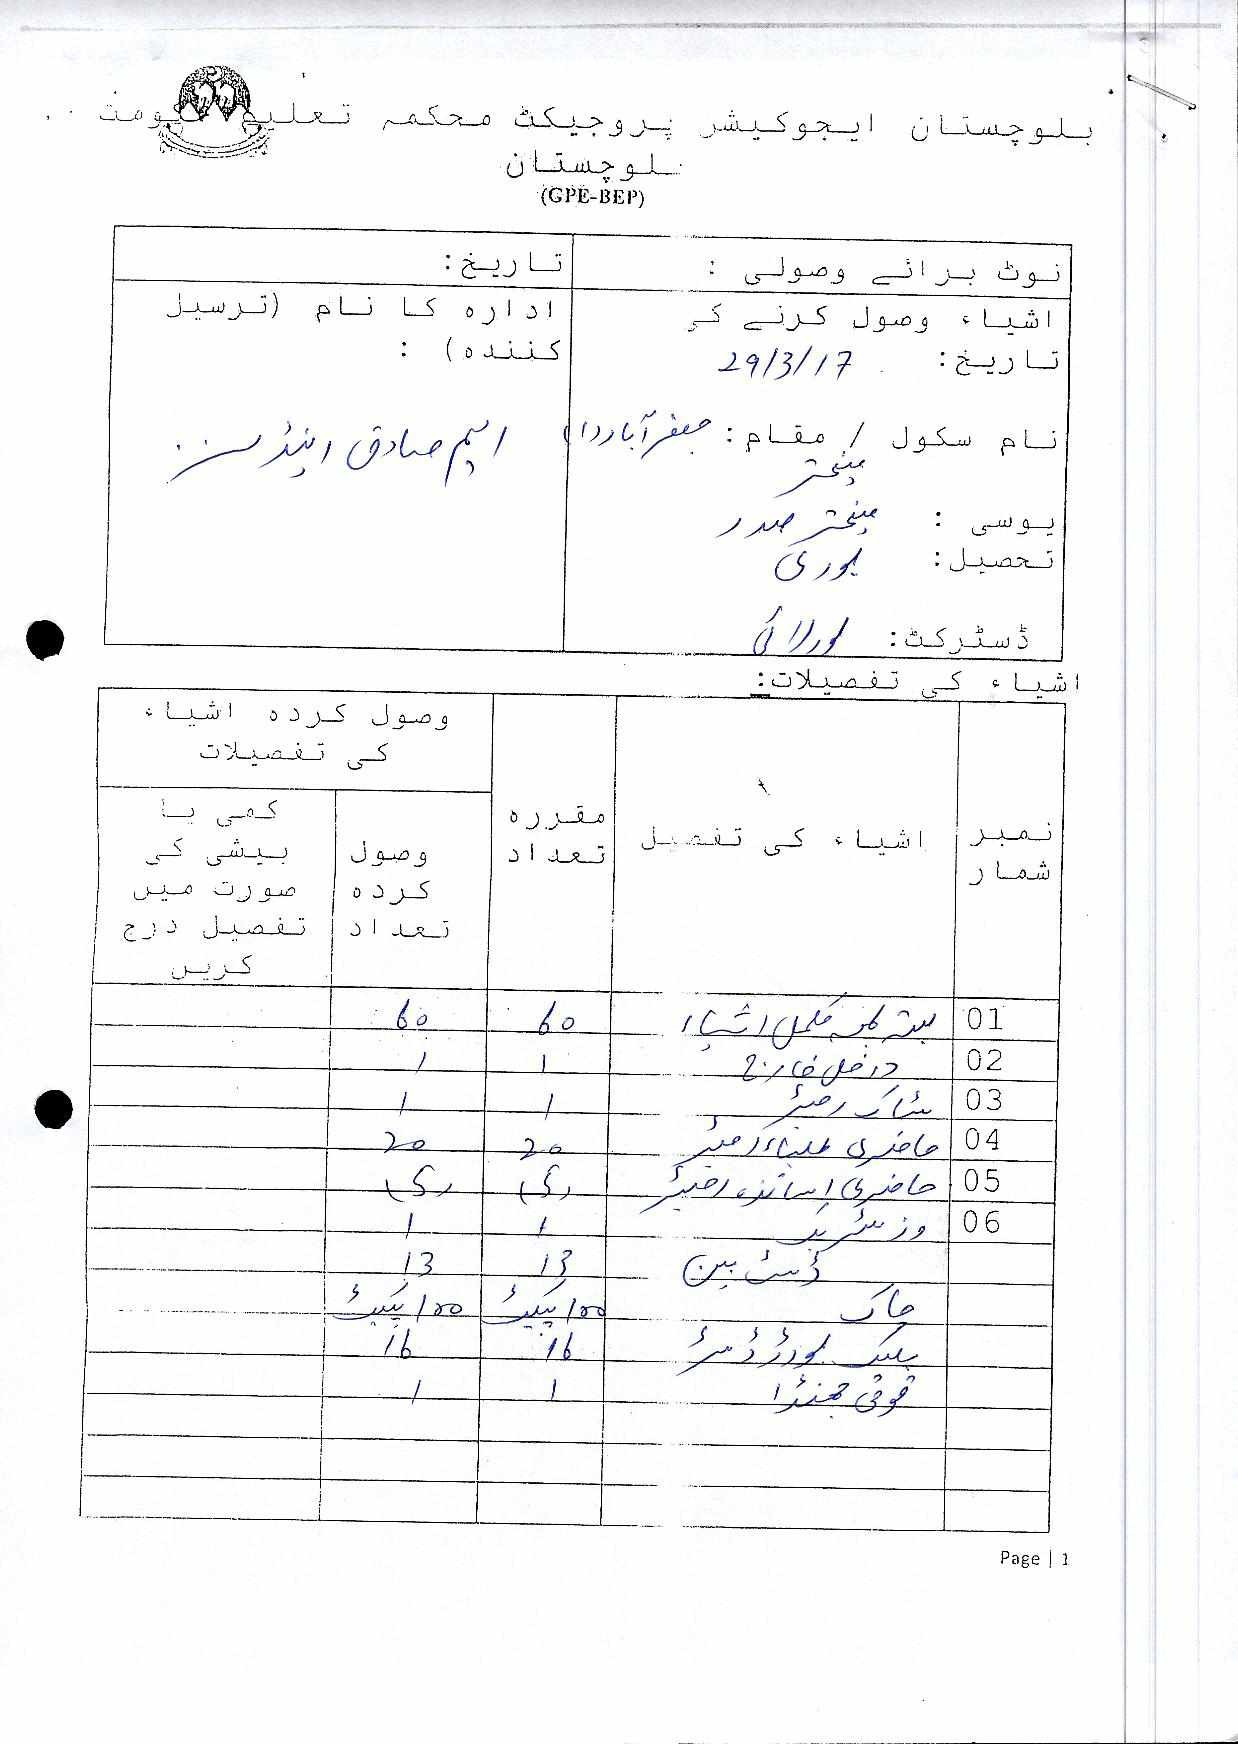 بلوچستان ایجوکیشن پروجیکٹ محکمہ تعلیم حکومت
بلوچستان
(GPE-BEP)
نوٹ برائے وصولی :
تاریخ:
اشیاء وصول کرنے کی
تاریخ: 29/3/17
ادارہ کا نام (ترسیل
کنندہ) :
ایم صادق اینڈ سنز
نام سکول / مقام: جعفرآباد
میختر
یوسی : میختر صدر
تحصیل: بوری
ڈسٹرکٹ: لورالائی
اشیاء کی تفصیلات:
نمبر شمار
اشیاء کی تفصیل
مقررہ تعداد
وصول کردہ اشیاء کی تفصیلات
وصول کردہ تعداد
کمی یا بیشی کی صورت میں تفصیل درج کریں
01 بستہ بمہ مکمل اشیاء 60 60
02 داخل خارج 1 1
03 سٹاک رجسٹر 1 1
04 حاضری طلباء رجسٹر 20 20
05 حاضری اساتذہ رجسٹر
06 1 1
ڈسٹ بین 13 13
چاک 100 پیکٹ 100 پیکٹ
بلیک بورڈ ڈسٹر 16 16
قومی جھنڈا 1 1
Page | 1